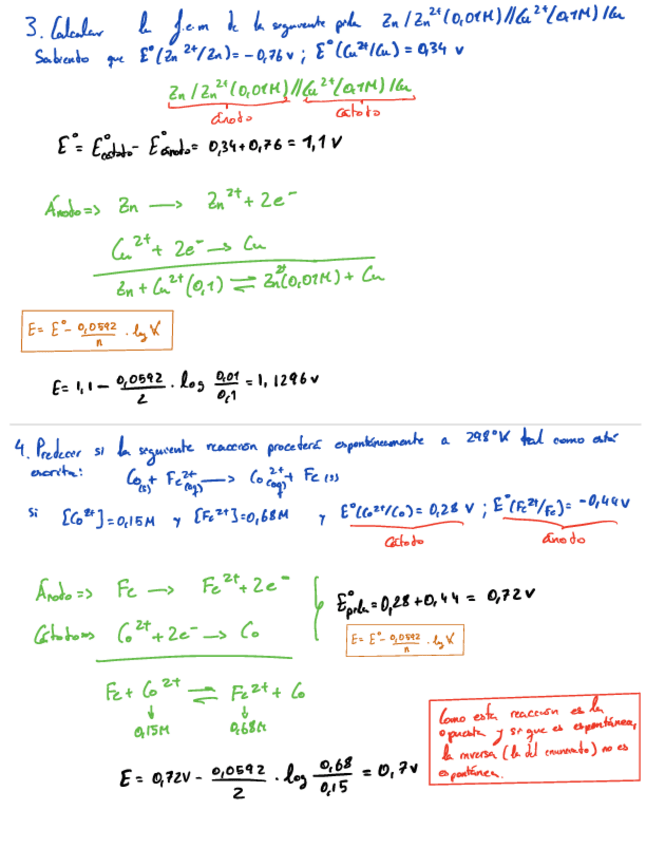 3. Calcular la f.e.m de la siguiente pila Zn/Zn²⁺(0,01M)//Cu²⁺(0,1M)/Cu
Sabiendo que E°(Zn²⁺/Zn)= -0,76 v ; E°(Cu²⁺/Cu) = 0,34 v
Zn/Zn²⁺(0,01M)//Cu²⁺(0,1M)/Cu
ánodo cátodo
E° = E°cátodo - E°ánodo = 0,34 + 0,76 = 1,1 V
Ánodo => Zn → Zn²⁺ + 2e⁻
Cu²⁺ + 2e⁻ → Cu
Zn + Cu²⁺(0,1) ⇌ Zn²⁺(0,01M) + Cu
E = E° - 0,0592/n · log K
E = 1,1 - 0,0592/2 · log 0,01/0,1 = 1,1296 v
4. Predecir si la siguiente reacción procederá espontáneamente a 298°K tal como está
escrita: Co(s) + Fe²⁺(aq) → Co²⁺(aq) + Fe(s)
Si [Co²⁺] = 0,15M y [Fe²⁺] = 0,68M y E°(Co²⁺/Co) = 0,28 V ; E°(Fe²⁺/Fe) = -0,44V
Cátodo ánodo
Ánodo => Fe → Fe²⁺ + 2e⁻
E°pila = 0,28 + 0,44 = 0,72 V
Cátodo => Co²⁺ + 2e⁻ → Co
E = E° - 0,0592/n · log K
Fe + Co²⁺ ⇌ Fe²⁺ + Co
0,15M 0,68M
Como esta reacción es la
opuesta y sí que es espontánea,
la inversa (la del enunciado) no es
espontánea.
E = 0,72V - 0,0592/2 · log 0,68/0,15 = 0,7 V